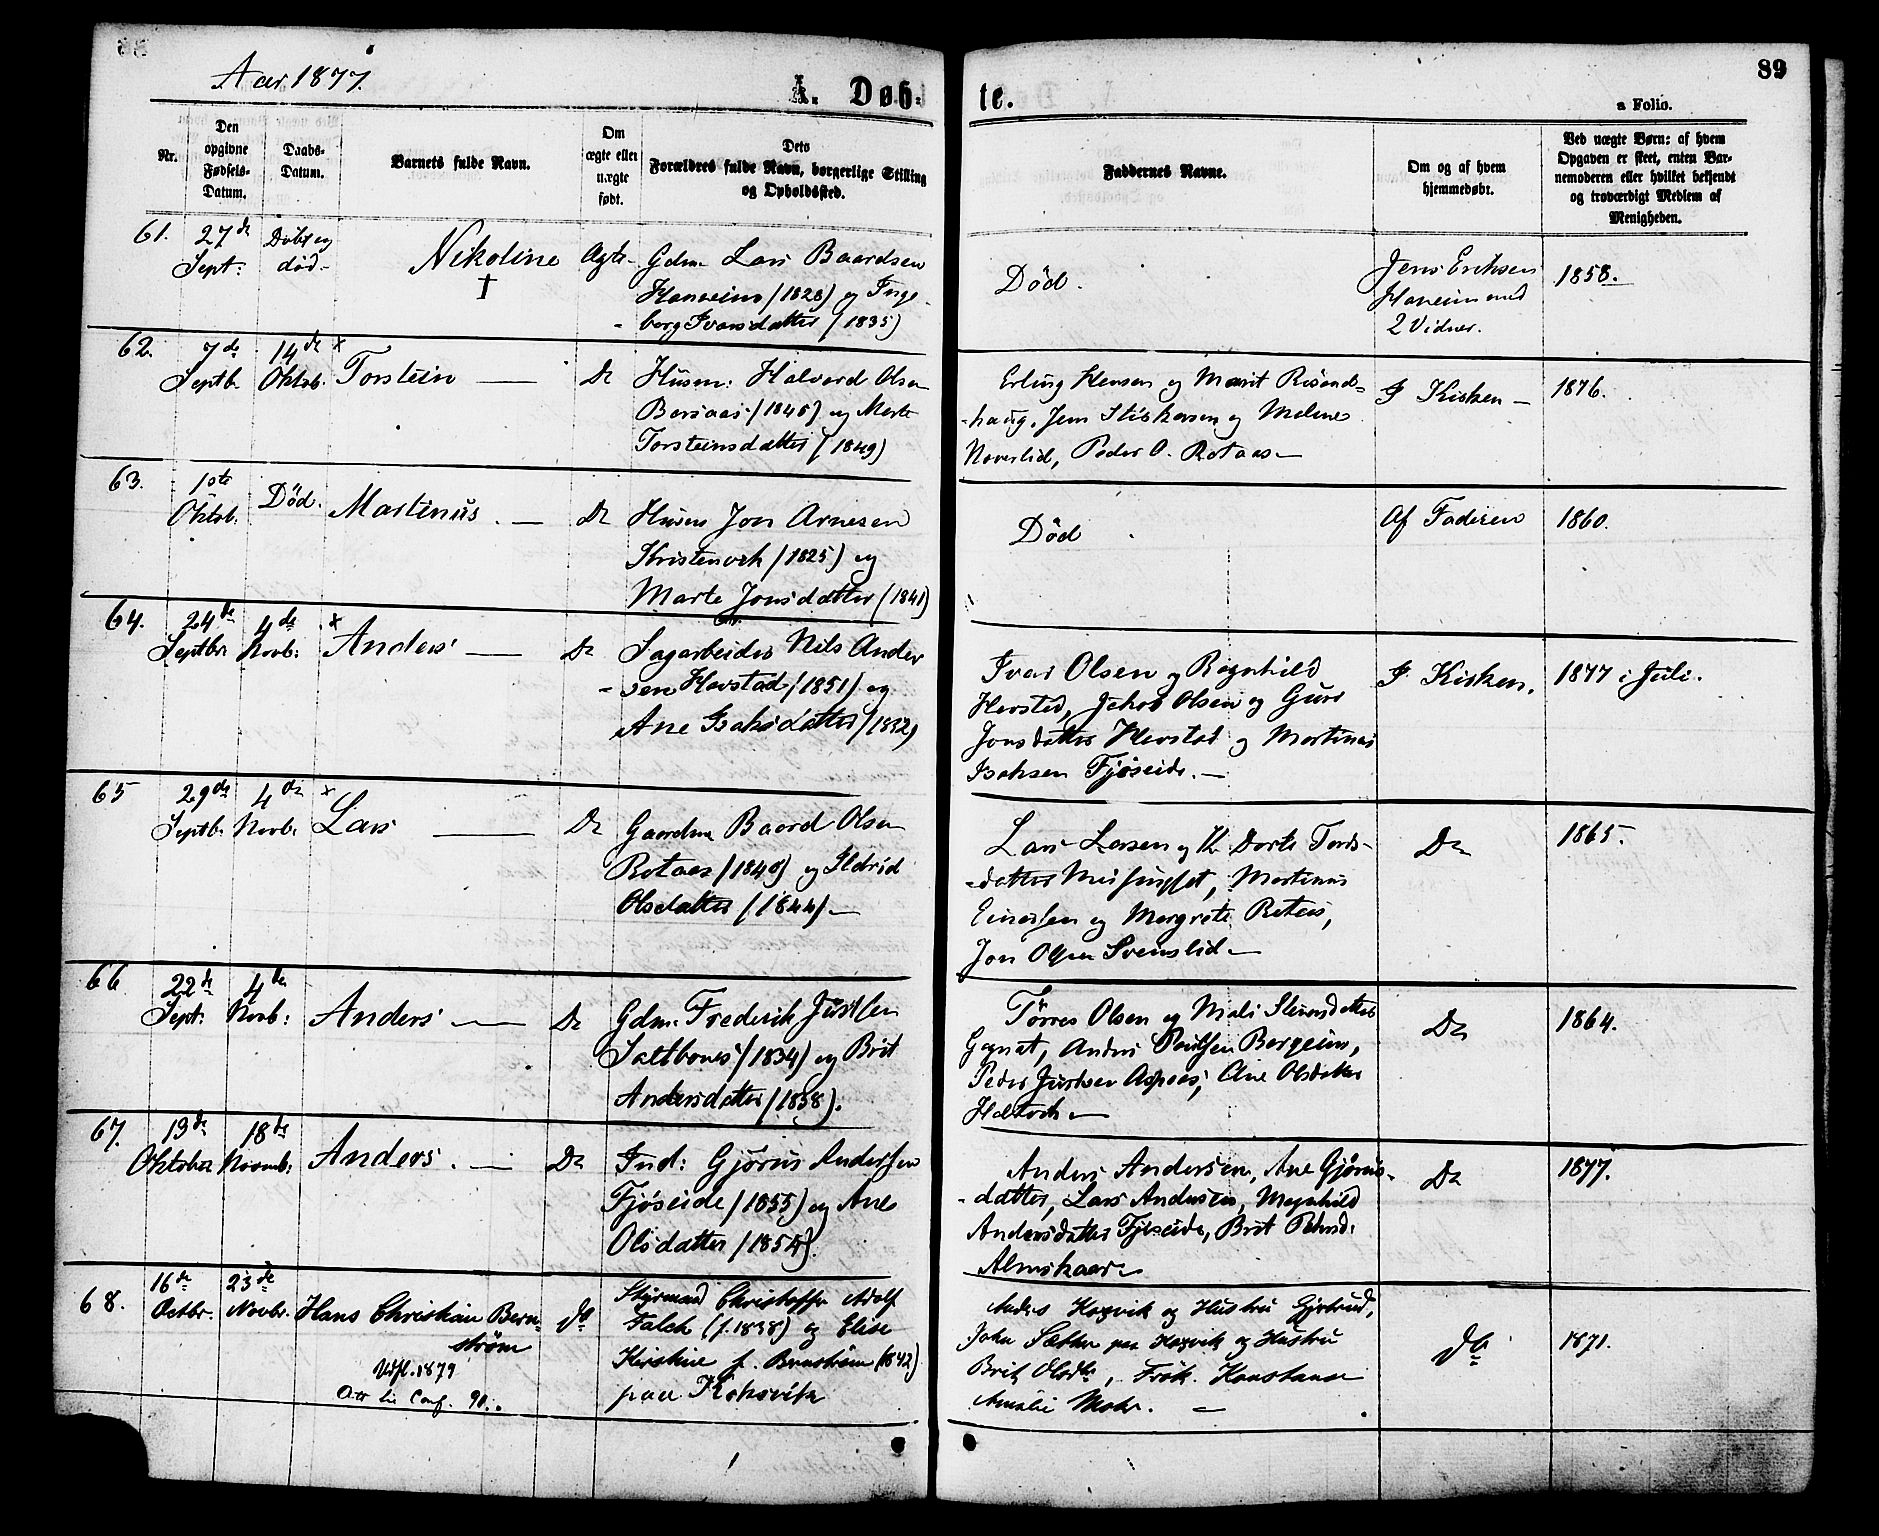 Aar 1877.
A. Døb-
te.
89
a Folio.
Nr.
Den
opgivne
Fødsels-
Datum.
Daabs-
Datum.
Barnets fulde Navn.
Om
ægte eller
uægte
født.
Dets
Forældres fulde Navn, borgerlige Stilling
og Opholdssted.
Faddernes Navne.
Om og af hvem
hjemmedøbt.
Ved uægte Børn: af hvem
Opgaven er skeet, enten Bar-
nemoderen eller hvilket bekjendt
og troværdigt Medlem af
Menigheden.
61.
27de
Sept:
Døbt og
død-
Nikoline
†
Ægte-
Gdm. Lars Baardsen
Haneim (1828) og Inge-
- borg Ivarsdatter (1835)
Død.
Jens Eriksen
Haneim med
2 Vidner.
1858.
62.
7de
Septb.
14de
Oktob.
x
Torstein —
Do
Husm: Halvord Olsen
Borsaas (1845) og Marte
Torsteinsdatter (1849)
Erling Hansen og Marit
-haug, Jens og
Peder O. Rotaas —
I Kirken —
1876.
63.
1ste
Oktob.
Død.
Martinus. —
Do
Husm Jon Arnesen
(1825) og
Marte Jonsdatter (1841)
Død
Af Faderen
1860.
64.
24de
Septbr
4de
Novb:
x
Anders —
Do
Sagarbeider Nils Ander
- sen Havstad (1851) og
Ane Isaksdatter (1852)
Ivar Olsen og Ragnhild
Havstad, Jakob Olsen og Guru
Jonsdatter Havstad og Martinus
Isaksen Fjøseide. —
I Kirken.
1877 i Juli.
65
29de
Septb.
4de
Novb.
x
Lars —
Do
Gaardm Baard Olsen
Rotaas (1840) og Ildrid
Olsdatter (1844) —
Lars Larsen og Dorte Tores-
-datter, Martinus
Einersen og Margrete Rotaas,
Jon Olsen Svenslid —
Do
1865.
66
22de
Sept:
4de
Novb:
Anders —
Do
Gdm. Frederik Justsen
Saltbones (1834) og Brit
Andersdatter (1838).
Tørres Olsen og Mali
Gagnat, Anders Paulsen Bergeim,
Peder Justsen Aspaas, Ane Olsdatter
Do
1864.
67.
19de
Oktober
18de
Novemb:
Anders. —
Do
Ind: Gjørus Andersen
Fjøseide (1855) og Ane
Olsdatter (1854).
Anders Andersen, Ane Gjørus-
-datter, Lars Andersen, Magnhild
Andersdatter Fjøseide, Brit Pedersd:
Almskaar
Do
1877.
68.
16de
Octbr.
23de
Novbr.
Hans Christian Bern-
strøm
Udfl. 1879
Att til Conf. 90.
do
Styrmand Christoffer Adolf
Falck (f. 1838) og Elise
Kirstine f. Bernstrøm (1842)
paa Kokovika
Anders Hoxvik og Hustru Gjertrud,
John Sæther paa Hoxvik og Hustru
Brit Olsdtr, Frøk. Konstance
Amalie Mohr. —
do
1871.